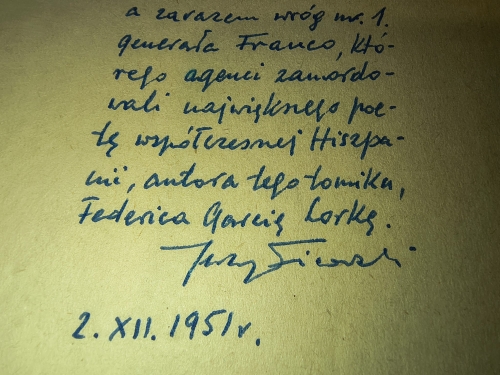 a zarazem wróg nr. 1.
generała Franco, któ-
rego agenci zamordo-
wali największego poe-
tę współczesnej Hiszpa-
nii, autora tego tomiku,
Federica Garcię Lorkę.
Jerzy Ficowski
2. XII. 1951 r.